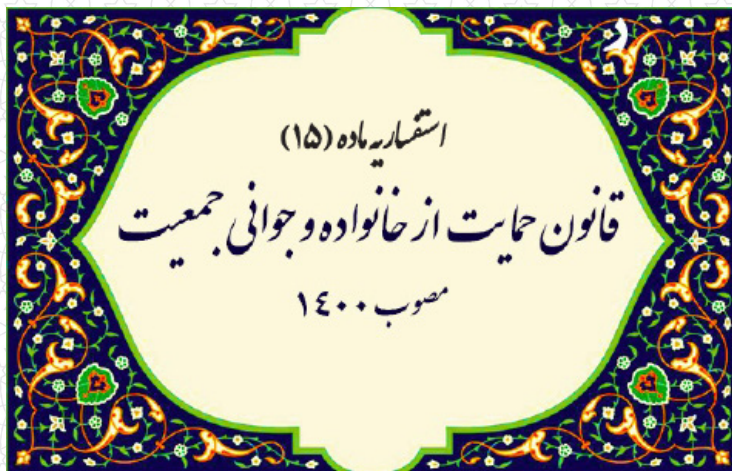 استفساریه ماده (۱۵)
قانون حمایت از خانواده و جوانی جمعیت
مصوب ۱۴۰۰